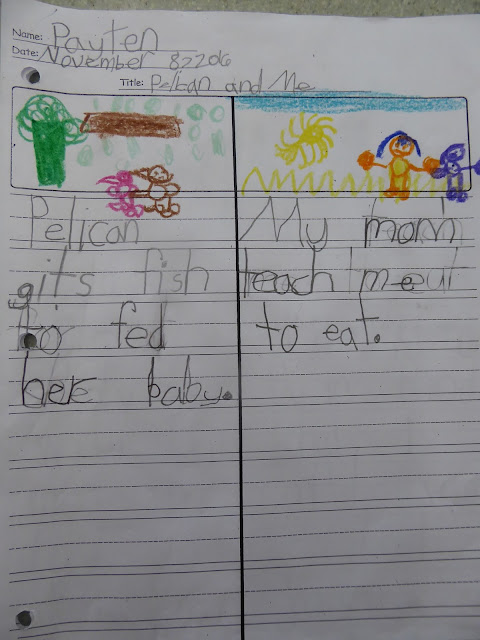 Name: Payten
Date: November 82206
Title: Pelican and Me
Pelican
gits fish
to fed
baby.
My mom
teach me
to eat.